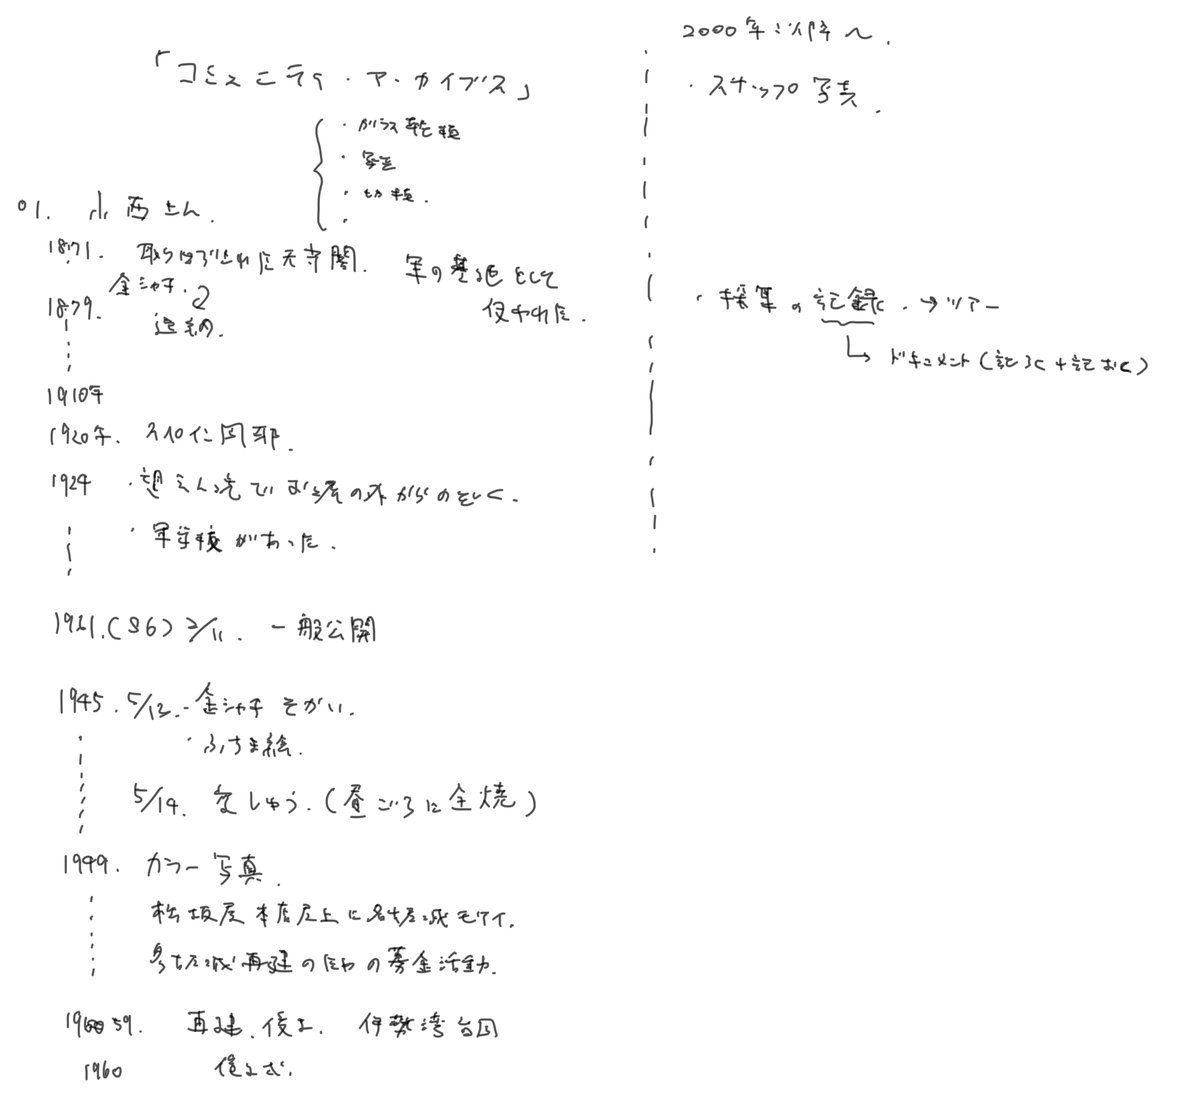 「コミュニティ・アーカイブス」
・ガラス乾板
・写真
・
01. 小西さん.
1871. 取りはずされた天守閣. 軍の基地として
使われた.
金シャチ.
1879.
1910年
1920年.
1924
・軍学校があった.
1931.(S6) 2/11. 一般公開
1945. 5/12. ・金シャチ そかい.
・ふすま絵.
5/14. 空しゅう.(昼ごろに全焼)
1949. カラー写真.
松坂屋本店屋上に名古屋城
名古屋城再建のための募金活動.
1959. 再建. 伊勢湾台風
1960
2000年以降〜.
・スナップ写真.
の記録. →ツアー
ドキュメント(記ろく+記おく)